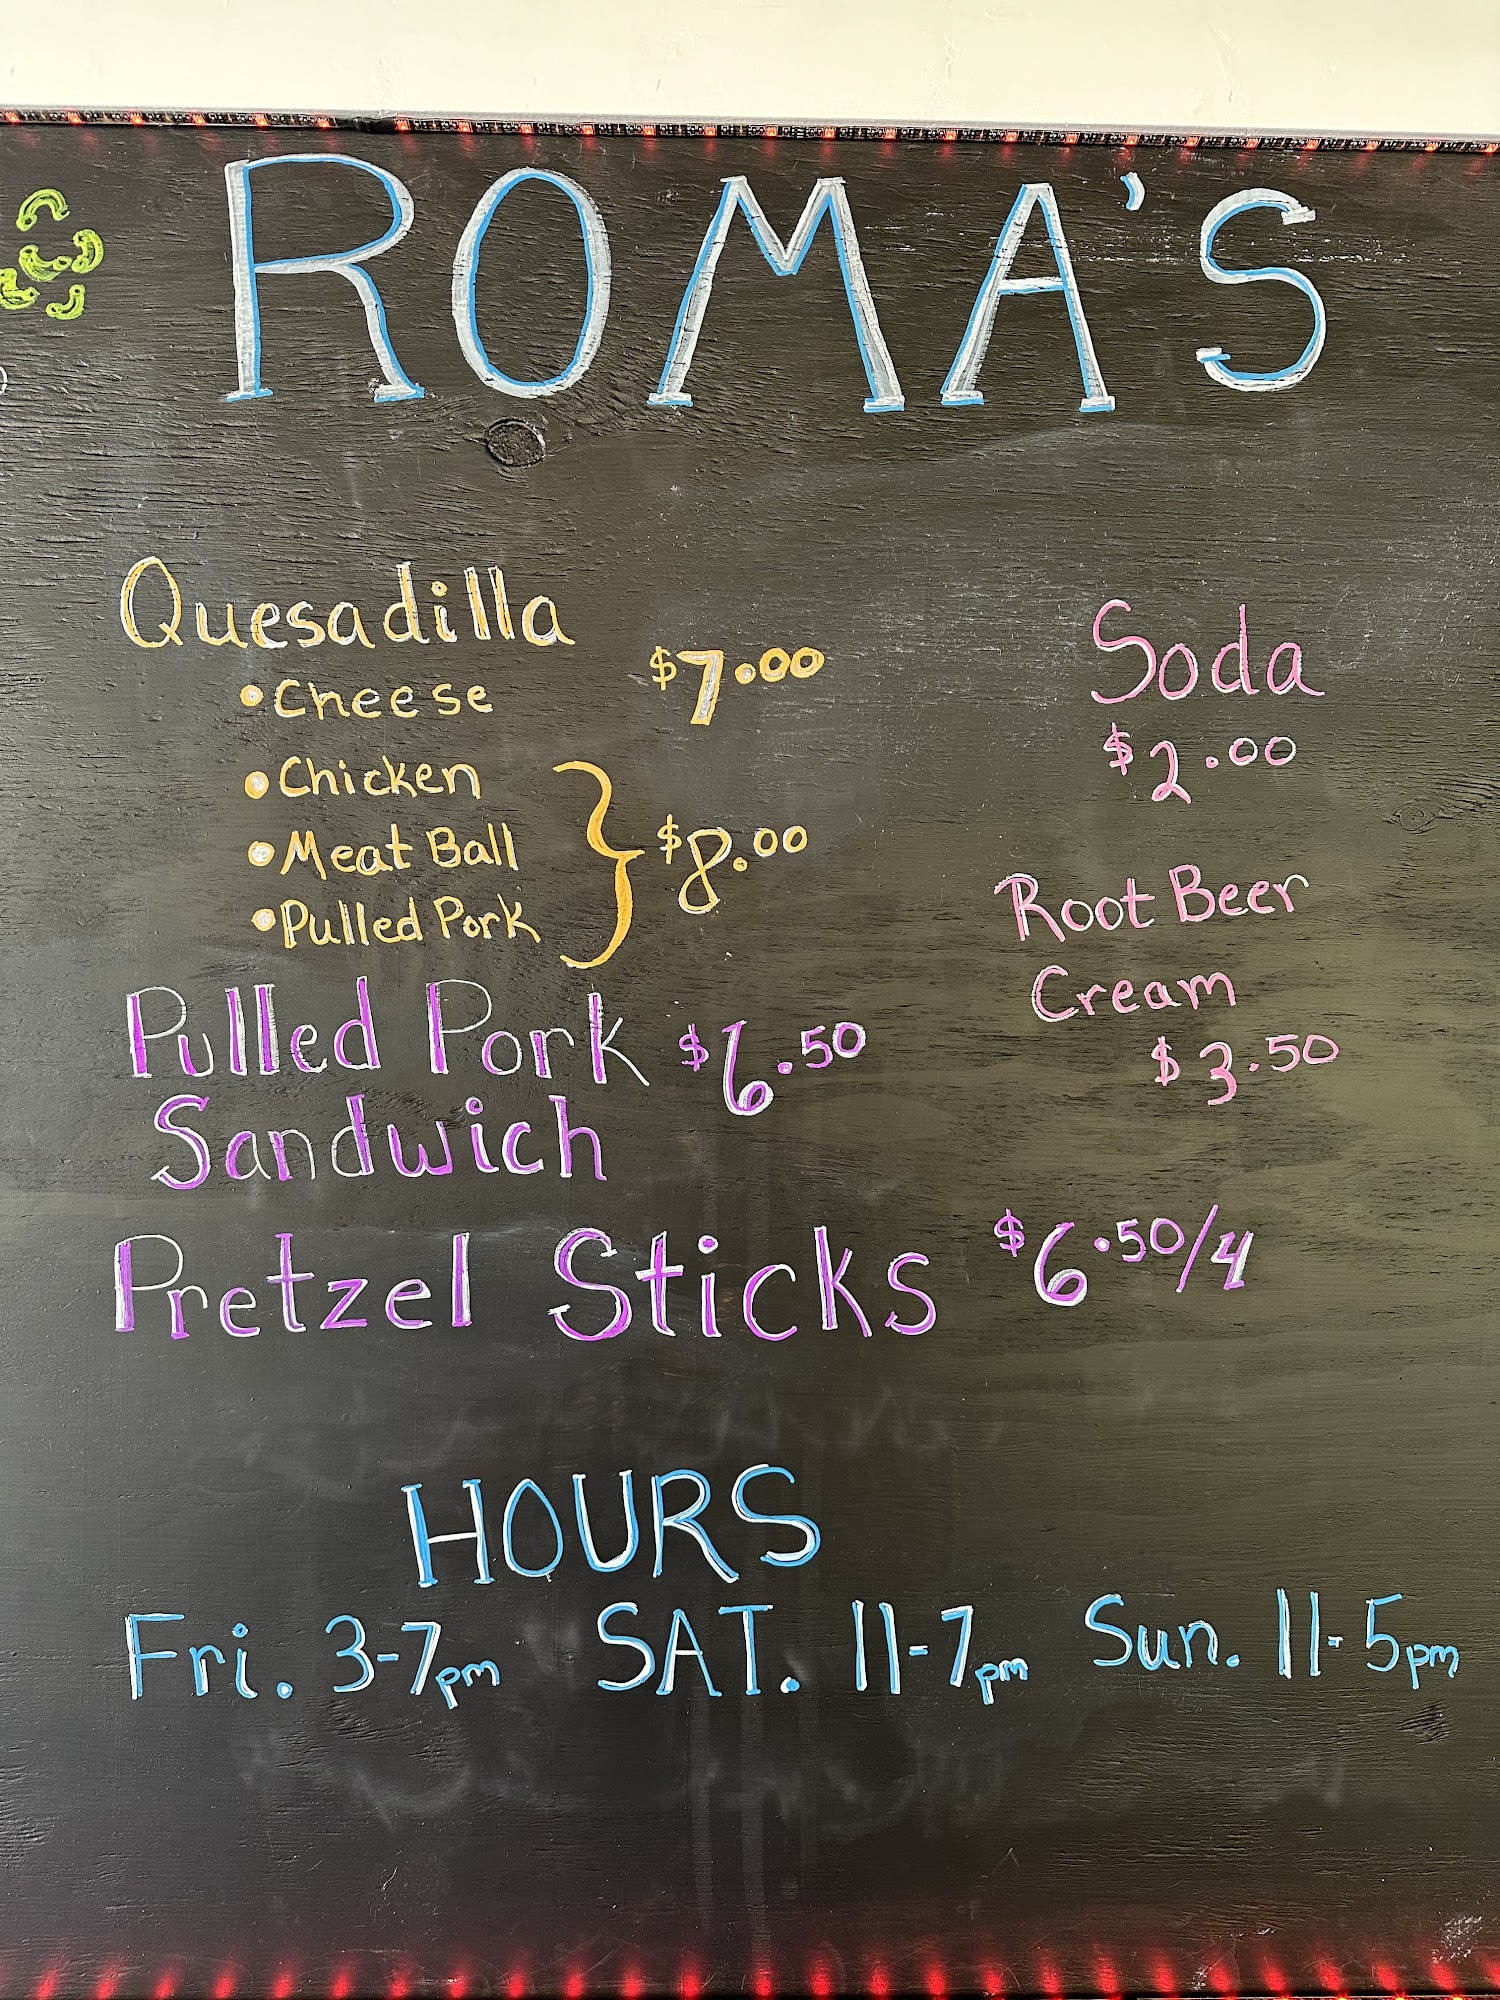 ROMA'S
Quesadilla
•Cheese $7.00
•Chicken
•Meat Ball
•Pulled Pork
$8.00
Pulled Pork $6.50
Sandwich
Pretzel Sticks $6.50/4
Soda
$2.00
Root Beer
Cream
$3.50
HOURS
Fri. 3-7pm SAT. 11-7pm Sun. 11-5pm